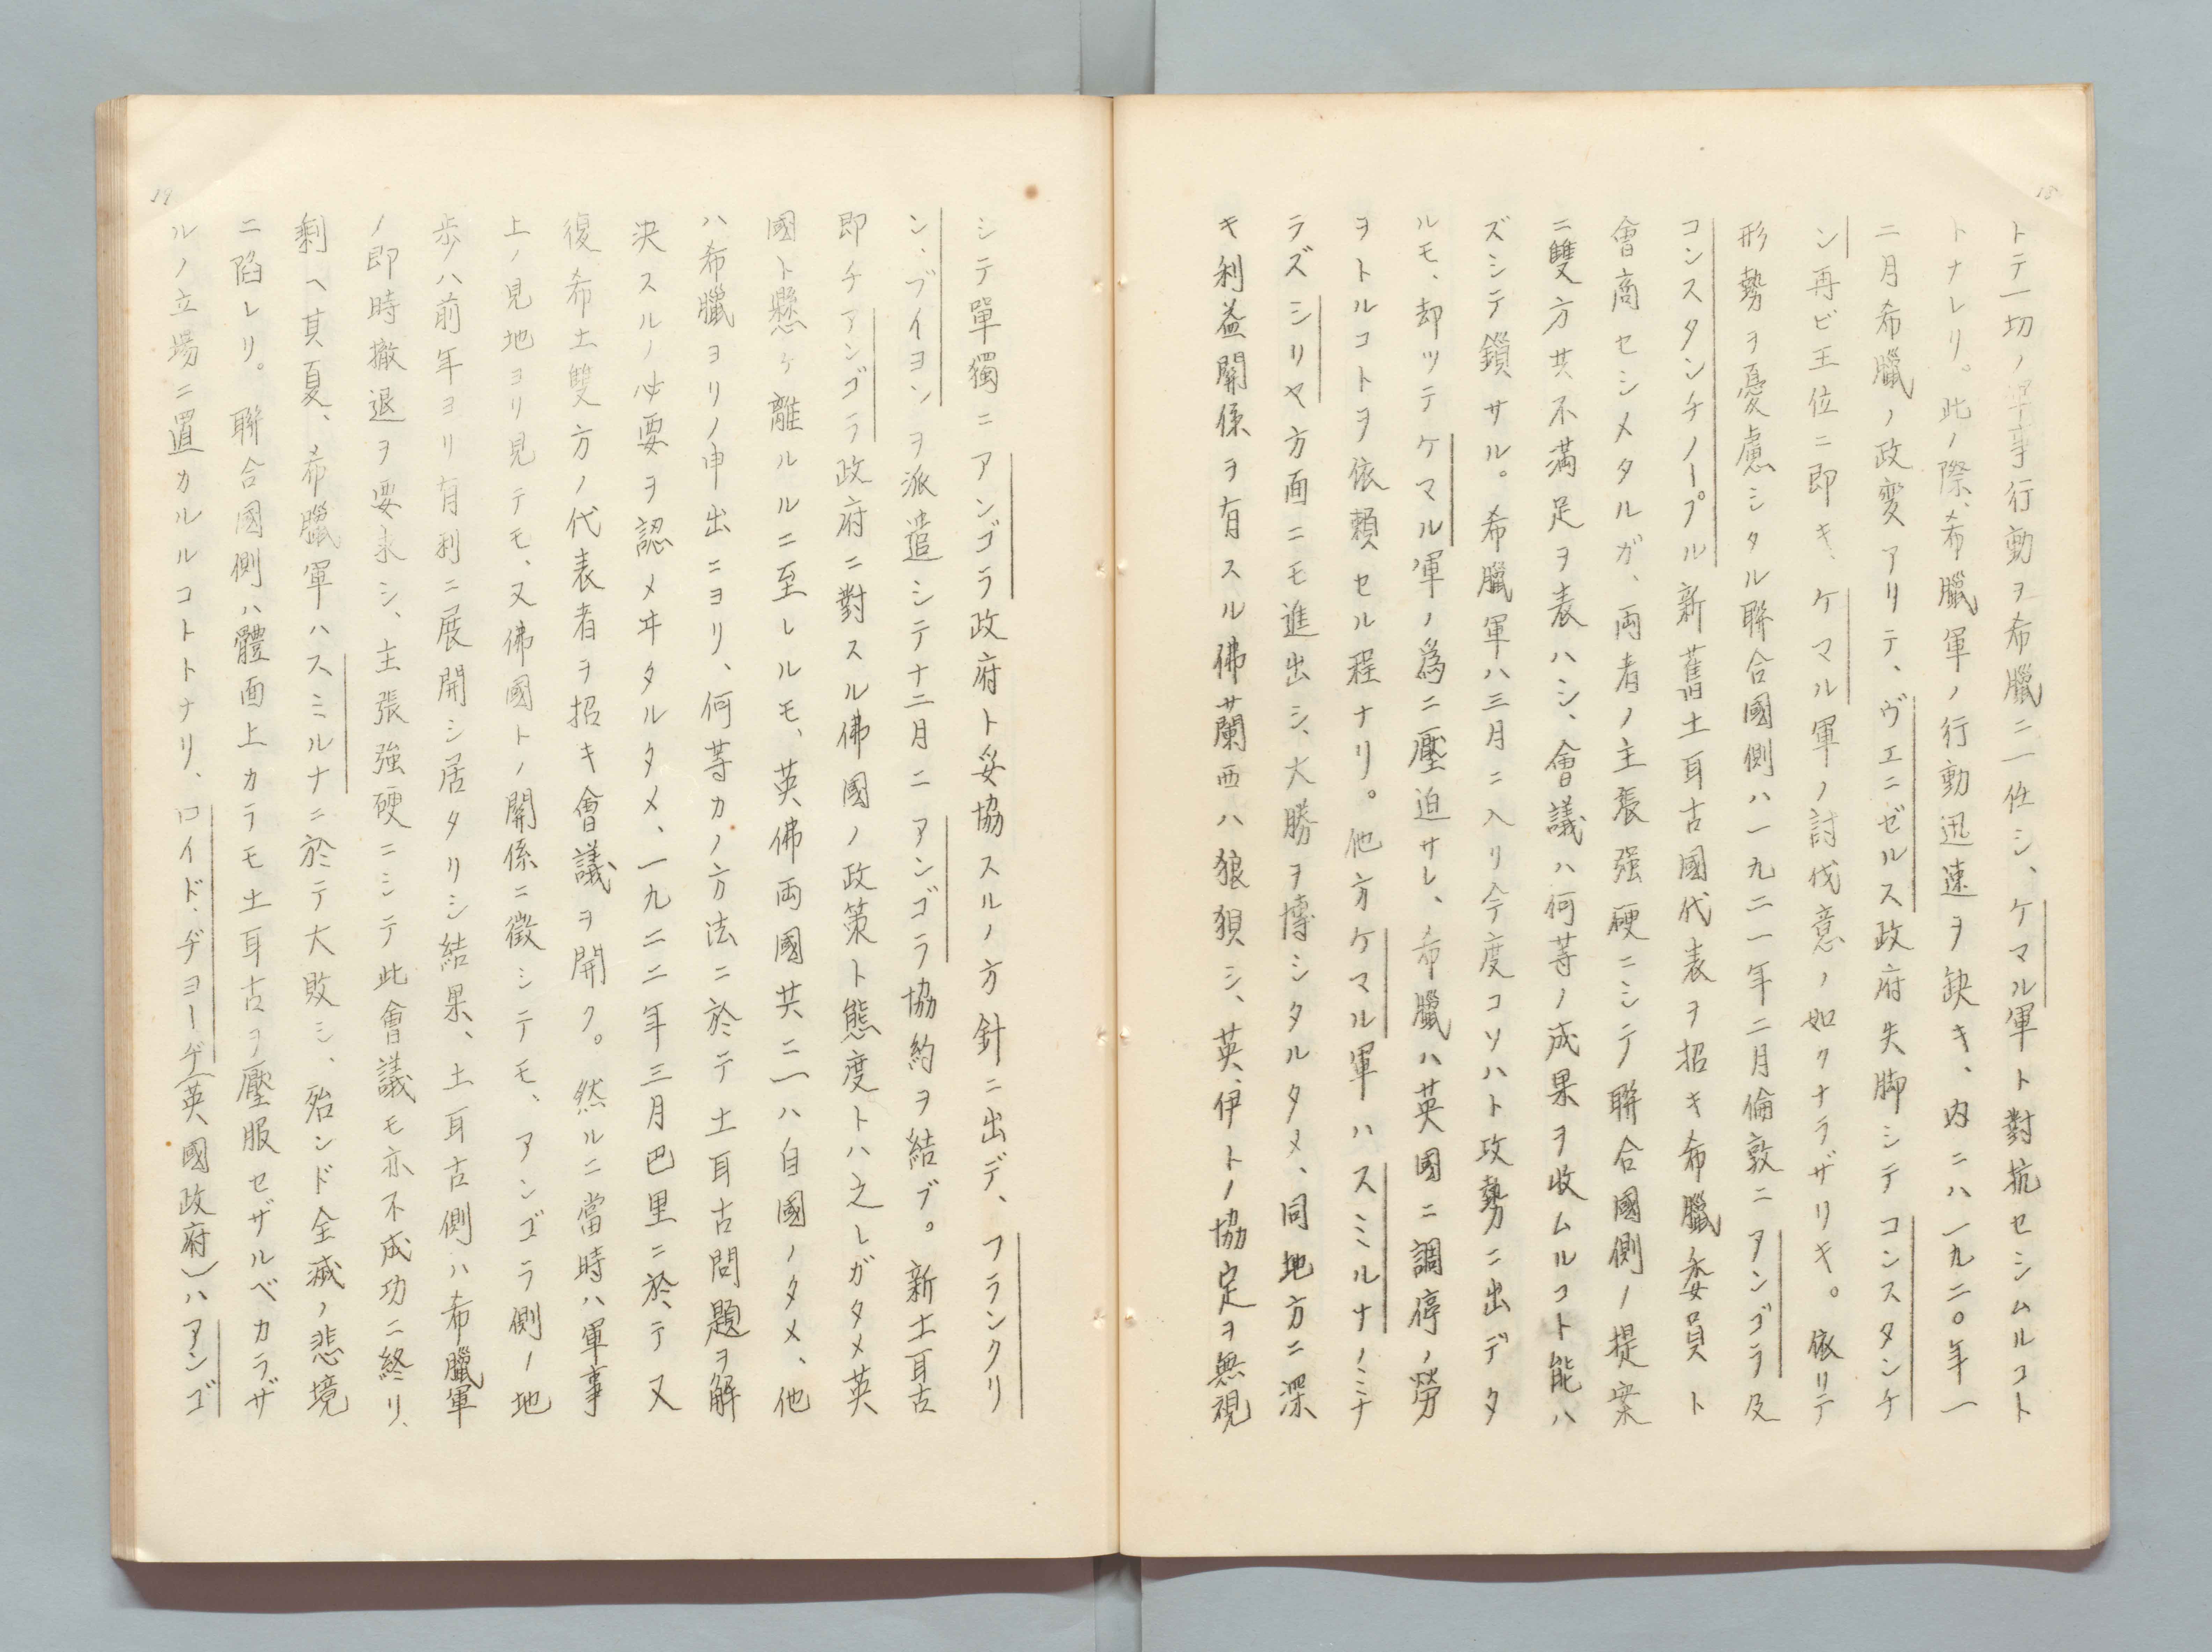 18
トテ一切ノ軍事行動ヲ希臘ニ一任シ、ケマル軍ト對抗セシムルコト
トナレリ。此ノ際、希臘軍ノ行動迅速ヲ缺キ、内ニハ一九二〇年一
二月希臘ノ政変アリテ、ヴエニゼルス政府失脚シテコンスタンチ
ン再ビ王位ニ即キ、ケマル軍ノ討伐意ノ如クナラザリキ。依リテ
形勢ヲ憂慮シタル聯合國側ハ一九二一年二月倫敦ニアンゴラ及
コンスタンチノープル新舊土耳古國代表ヲ招キ希臘委員ト
會商セシメタルガ、両者ノ主張强硬ニシテ聯合國側ノ提案
ニ雙方共不満足ヲ表ハシ、會議ハ何等ノ成果ヲ收ムルコト能ハ
ズシテ鎖サル。希臘軍ハ三月ニ入リ今度コソハト攻勢ニ出デタ
ルモ、却ッテケマル軍ノ爲ニ壓迫サレ、希臘ハ英國ニ調停ノ勞
ヲトルコトヲ依頼セル程ナリ。他方ケマル軍ハスミルナノミナ
ラズシリヤ方面ニモ進出シ、大勝ヲ博シタルタメ、同地方ニ深
キ利益関係ヲ有スル佛蘭西ハ狼狽シ、英、伊トノ協定ヲ無視
19
シテ單獨ニアンゴラ政府ト妥協スルノ方針ニ出デ、フランクリ
ン、ブイヨンヲ派遣シテ十二月ニアンゴラ協約ヲ結ブ。新土耳古
即チアンゴラ政府ニ對スル佛國ノ政策ト態度トハ之レガタメ英
國ト懸ケ離ルルニ至レルモ、英佛両國共ニ一ハ自國ノタメ、他
ハ希臘ヨリノ申出ニヨリ、何等カノ方法ニ於テ土耳古問題ヲ解
決スルノ必要ヲ認メヰタルタメ、一九二二年三月巴里ニ於テ又
復希土雙方ノ代表者ヲ招キ會議ヲ開ク。然ルニ當時ハ軍事
上ノ見地ヨリ見テモ、又佛國トノ關係ニ徵シテモ、アンゴラ側ノ地
歩ハ前年ヨリ有利ニ展開シ居タリシ結果、土耳古側ハ希臘軍
ノ即時撤退ヲ要求シ、主張強硬ニシテ此會議モ亦不成功ニ終リ、
剰ヘ其夏、希臘軍ハスミルナニ於テ大敗シ、殆ンド全滅ノ悲境
ニ陷レリ。聯合國側ハ體面上カラモ土耳古ヲ壓服セザルベカラザ
ルノ立場ニ置カルルコトトナリ、ロイド、ヂヨーヂ(英國政府)ハアンゴ